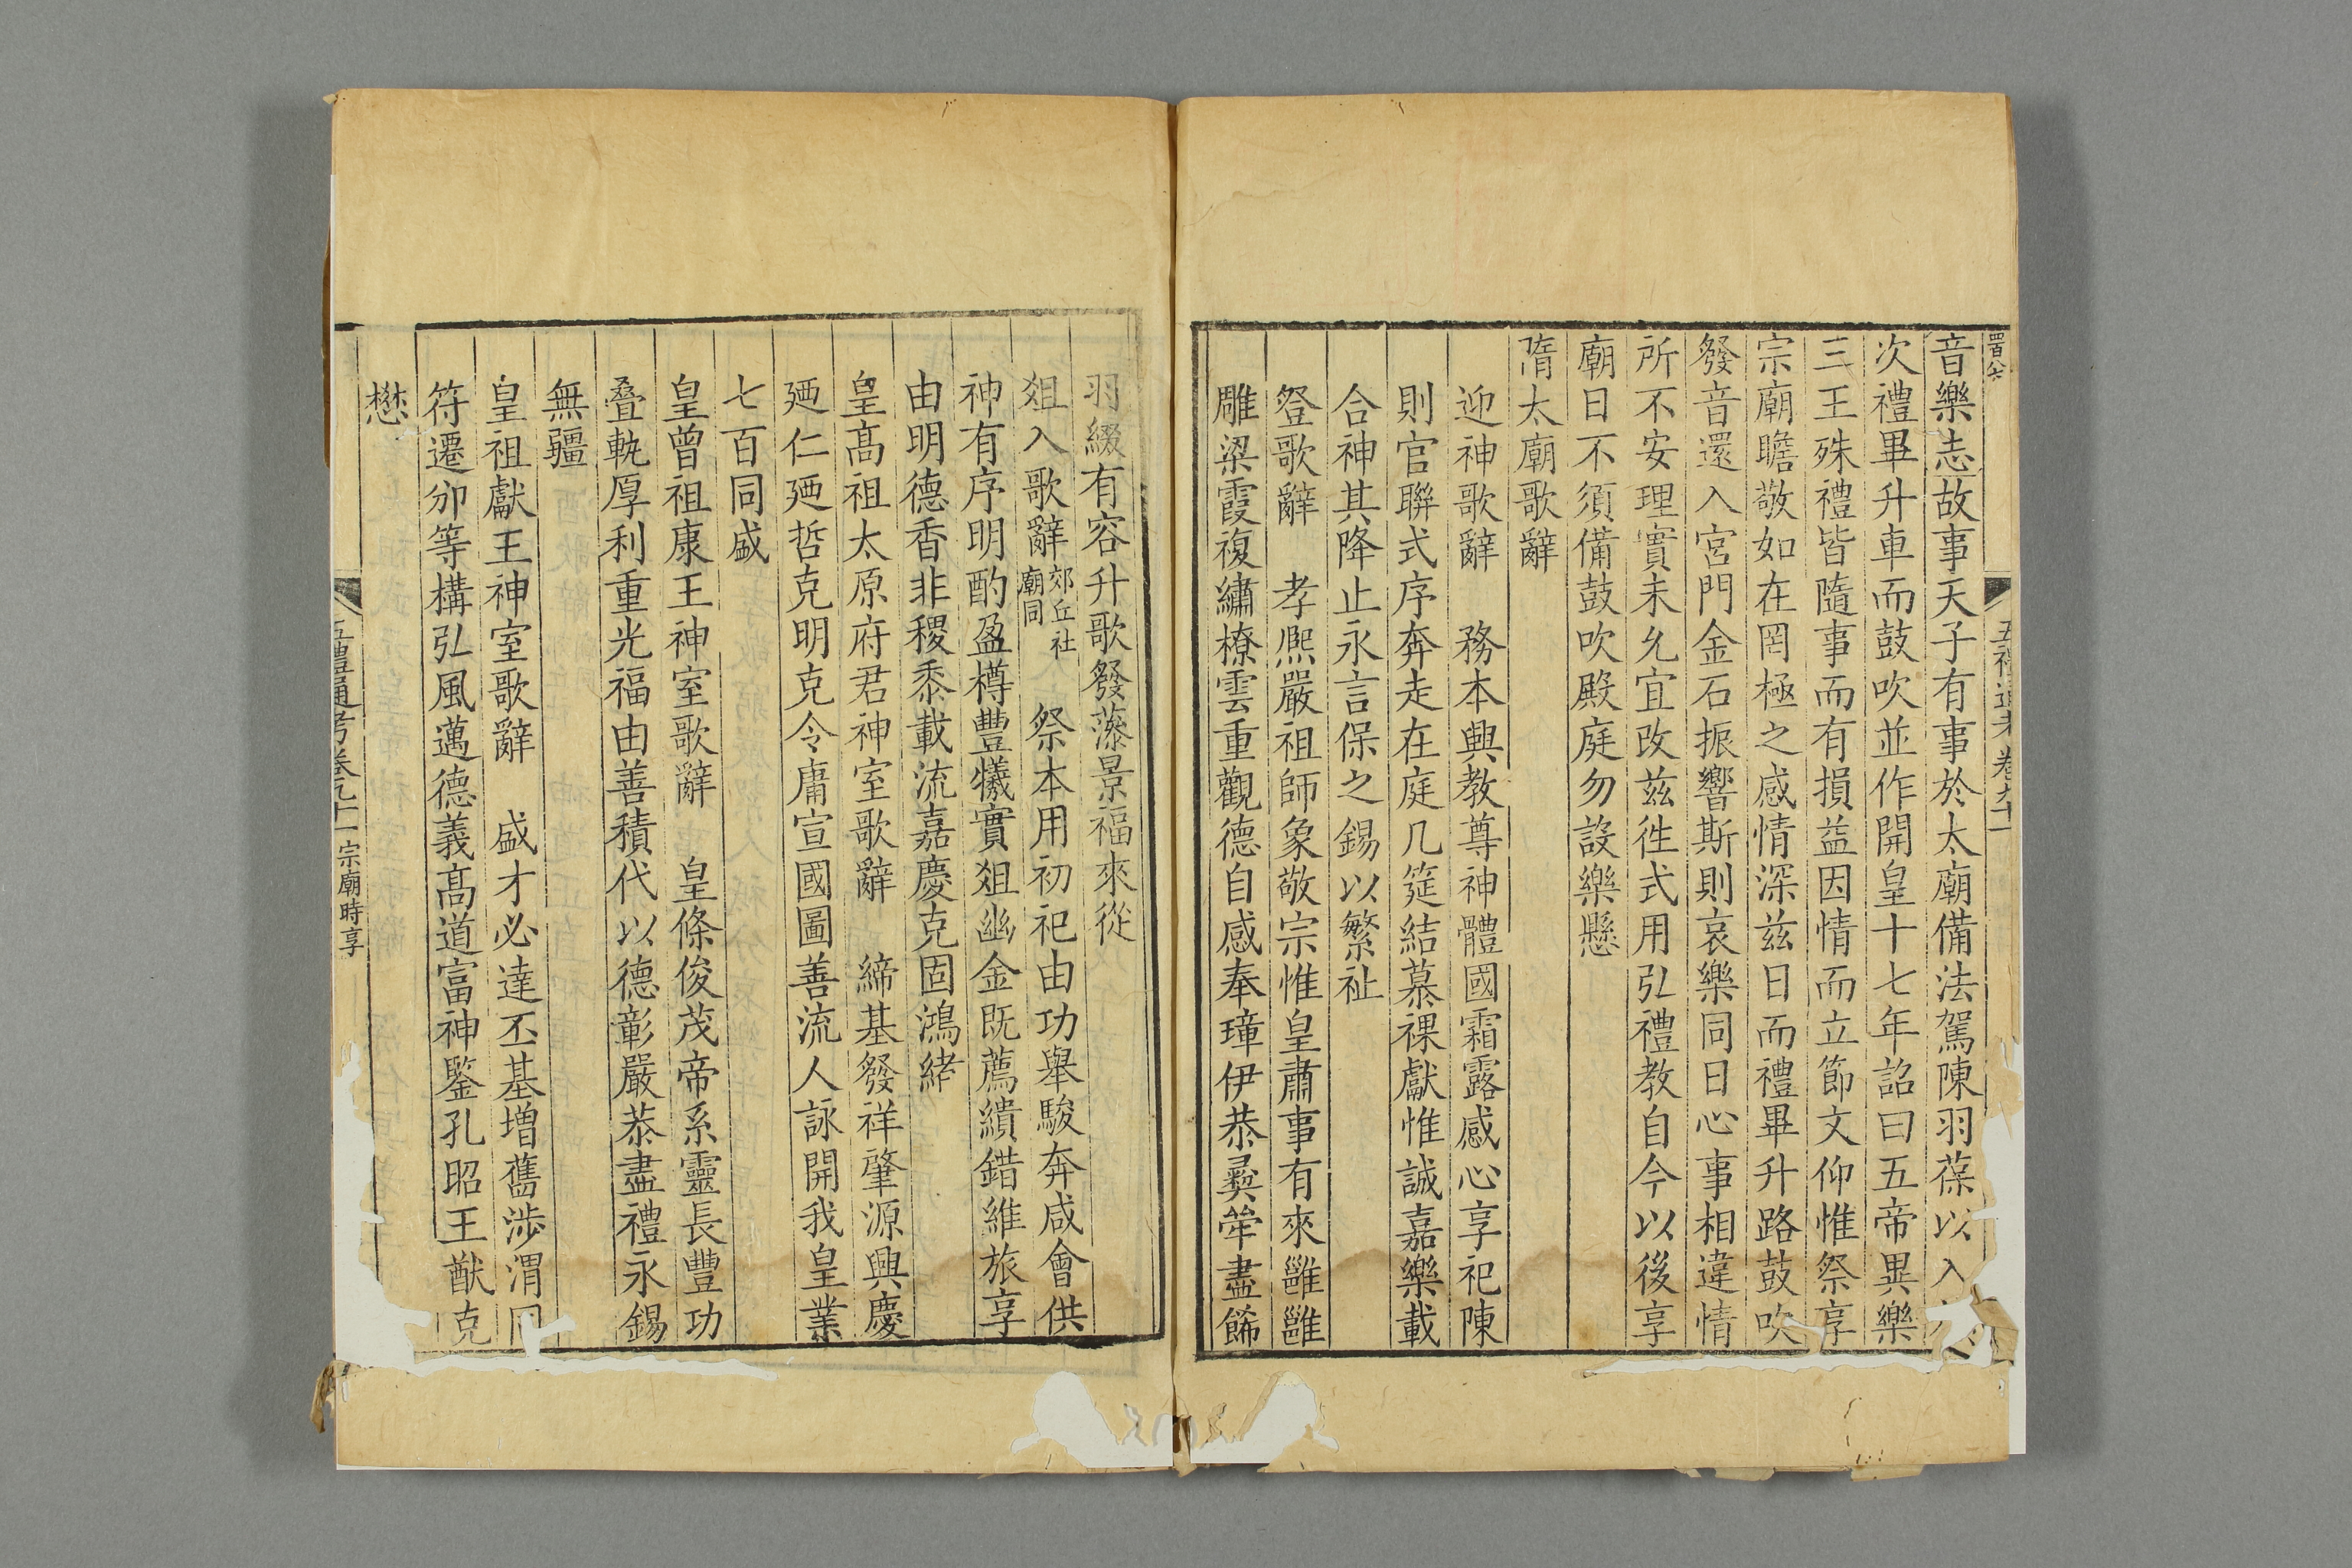 音樂志故事天子有事於太廟備法駕陳羽葆以入
次禮畢升車而鼓吹並作開皇十七年詔曰五帝異樂
三王殊禮皆隨事而有損益因情而立節文仰惟祭享
宗廟瞻敬如在罔極之感情深茲日而禮畢升路鼓吹
發音還入宮門金石振響斯則哀樂同日心事相違情
所不安理實未允宜改茲徃式用弘禮教自今以後享
廟日不須備鼓吹殿庭勿設樂懸
隋太廟歌辭
迎神歌辭 務本興教尊神體國霜露感心享祀陳
則官聮式序奔走在庭几筵結慕裸獻惟誠嘉樂載
合神其降止永言保之錫以繁祉
登歌辭 孝熈嚴祖師象敬宗惟皇肅事有來雝雝
雕梁霞複繡橑雲重觀德自感奉璋伊恭彛斝盡飾
羽綴有容升歌發藻景福來從
俎入歌辭 郊丘社廟同 祭本用初祀由功舉駿奔咸會供
神有序明酌盈樽豐犧實俎幽金既薦繢錯維旅享
由明德香非稷黍載流嘉慶克固鴻緒
皇高祖太原府君神室歌辭 締基發祥肇源興慶
廼仁廼哲克明克令庸宣國圖善流人詠開我皇業
七百同盛
皇曾祖康王神室歌辭 皇條俊茂帝系靈長豐功
疊軌厚利重光福由善積代以德彰嚴恭盡禮永錫
無疆
皇祖獻王神室歌辭 盛才必達丕基增舊涉渭同
符遷邠等構弘風邁德義高道富神鑒孔昭王猷克
懋
五禮通考卷九十一 宗廟時享